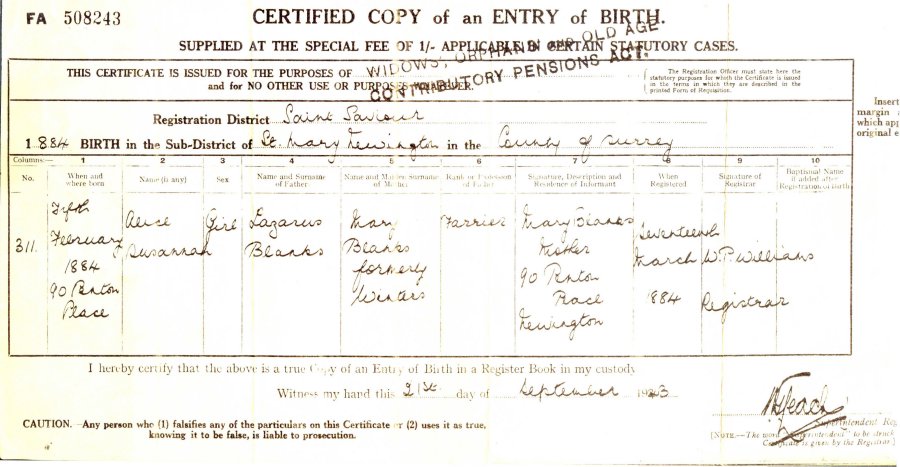 FA 508243
CERTIFIED COPY of an ENTRY of BIRTH.
SUPPLIED AT THE SPECIAL FEE OF 1/- APPLICABLE IN CERTAIN STATUTORY CASES.
THIS CERTIFICATE IS ISSUED FOR THE PURPOSES OF
and for NO OTHER USE OR PURPOSE WHATEVER.
WIDOWS', ORPHANS' AND OLD AGE
CONTRIBUTORY PENSIONS ACT.
The Registration Officer must state here the
statutory purposes for which the Certificate is issued
in the terms in which they are described in the
printed Form of Requisition.
Insert
margin
which app
original e
Registration District Saint Saviour
1884 BIRTH in the Sub-District of St. Mary Newington in the County of Surrey
Columns:— 1 2 3 4 5 6 7 8 9 10
No. When and where born Name (if any) Sex Name and Surname of Father Name and Maiden Surname of Mother Rank or Profession of Father Signature, Description and Residence of Informant When Registered Signature of Registrar Baptismal Name if added after Registration of Birth
311. Fifth February 1884 90 Penton Place
Alice Susannah
Girl
Lazarus Blanks
Mary Blanks formerly Winters
Farrier
Mary Blanks Mother 90 Penton Place Newington
Seventeenth March 1884
W.P. Williams Registrar
I hereby certify that the above is a true Copy of an Entry of Birth in a Register Book in my custody
Witness my hand this 21st day of September 1943
CAUTION.—Any person who (1) falsifies any of the particulars on this Certificate or (2) uses it as true,
knowing it to be false, is liable to prosecution.
Superintendent Reg
[NOTE.—The word "Superintendent" to be struck
Certificate is given by the Registrar.]